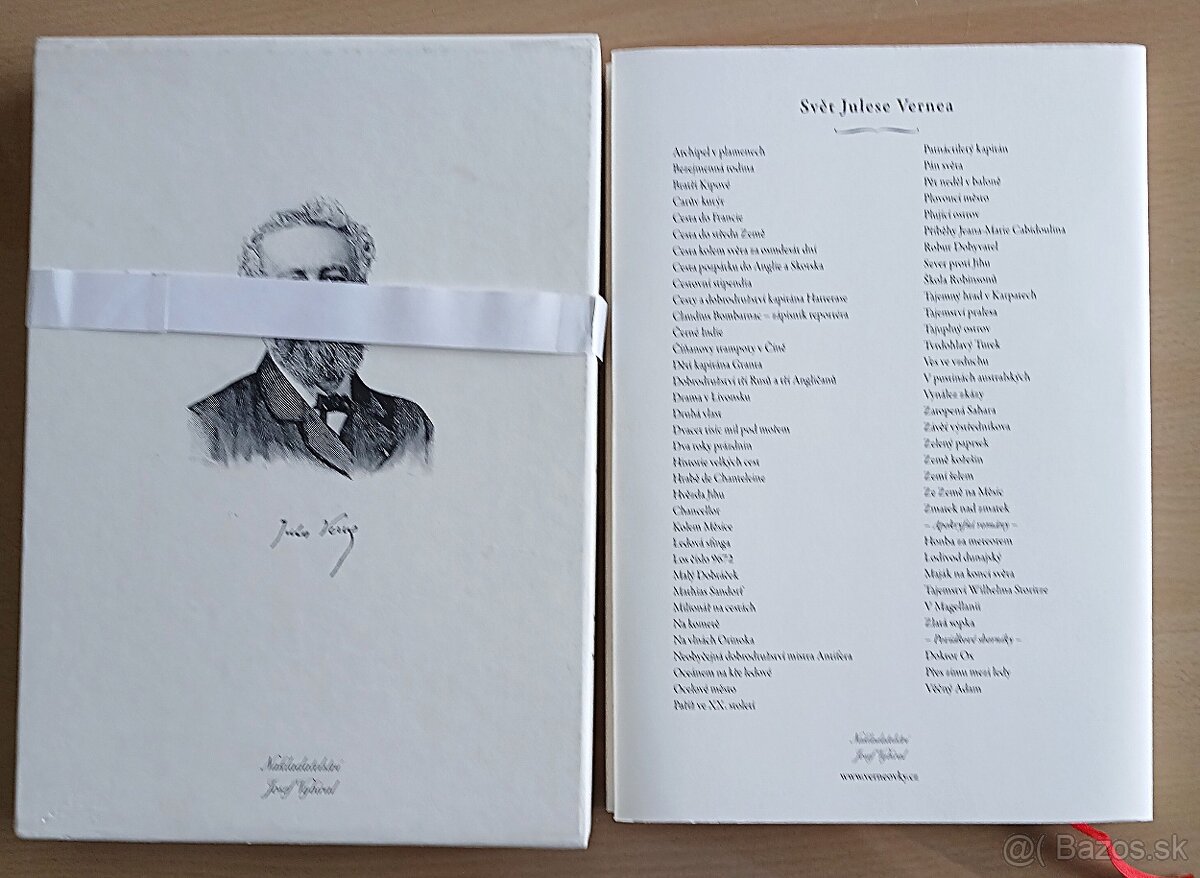 Jules Verne
Nakladatelství
Josef Vybíral
Svět Julese Vernea
Archipel v plamenech
Bezejmenná rodina
Bratři Kipové
Carův kurýr
Cesta do Francie
Cesta do středu Země
Cesta kolem světa za osmdesát dní
Cesta pozpátku do Anglie a Skotska
Cestovní stipendia
Cesty a dobrodružství kapitána Hatterase
Claudius Bombarnac – zápisník reportéra
Černé Indie
Číňanovy trampoty v Číně
Děti kapitána Granta
Dobrodružství tří Rusů a tří Angličanů
Drama v Livonsku
Druhá vlast
Dvacet tisíc mil pod mořem
Dva roky prázdnin
Historie velkých cest
Hrabě de Chanteleine
Hvězda Jihu
Chancellor
Kolem Měsíce
Ledová sfinga
Los číslo 9672
Malý Dobráček
Mathias Sandorf
Milionář na cestách
Na kometě
Na vlnách Orinoka
Neobyčejná dobrodružství mistra Antifera
Oceánem na kře ledové
Ocelové město
Paříž ve XX. století
Patnáctiletý kapitán
Pán světa
Pět neděl v baloně
Plovoucí město
Plující ostrov
Příběhy Jeana-Marie Cabidoulina
Robur Dobyvatel
Sever proti Jihu
Škola Robinsonů
Tajemný hrad v Karpatech
Tajemství pralesa
Tajuplný ostrov
Tvrdohlavý Turek
Ves ve vzduchu
V pustinách australských
Vynález zkázy
Zatopená Sahara
Závěť výstředníkova
Zelený paprsek
Země kožešin
Zemí šelem
Ze Země na Měsíc
Zmatek nad zmatek
– Apokryfní romány –
Honba za meteorem
Lodivod dunajský
Maják na konci světa
Tajemství Wilhelma Storitze
V Magellanii
Zlatá sopka
– Povídkové sborníky –
Doktor Ox
Přes zimu mezi ledy
Věčný Adam
Nakladatelství
Josef Vybíral
www.verneovky.cz
@( Bazos.sk